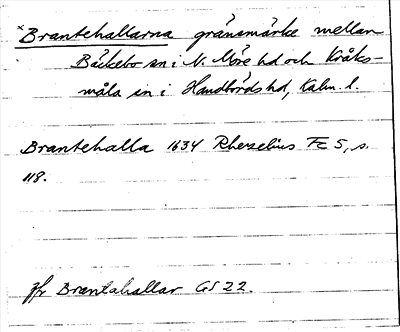 *Brantehallarna gränsmärke mellan
Bäckebo sn i N. Möre hd och Kråks-
måla sn i Handbörds hd, Kalm. l.
Brantehalla 1634 Rhezelius Fc 5, s.
118.
Jfr Brantahallar GS 22.